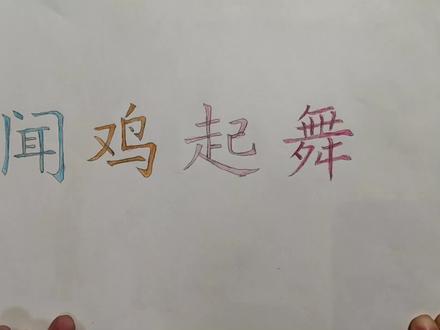 闻鸡起舞